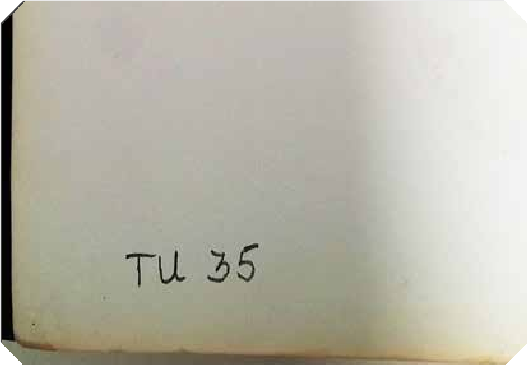 TU 35